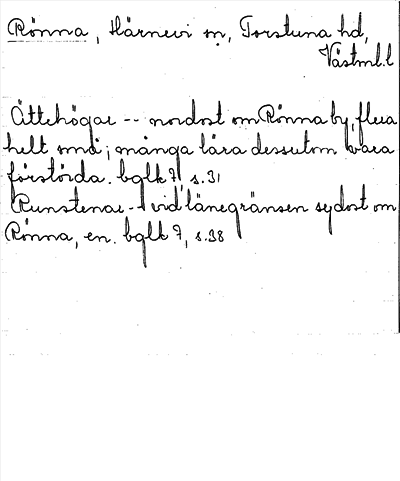 Rönna, Härnevi sn, Torstuna hd,
Västml.l
Ättehögar -- nordost om Rönna by, flera
helt små; många lära dessutom vara
förstörda. bglk 7, s.31
Runstenar - vid länsgränsen sydost om
Rönna, en. bglk 7, s.38